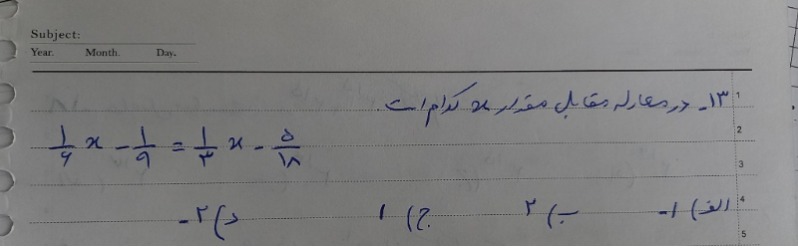 Subject:
Year. Month. Day.
۱۳- در معادله مقابل مقدار x کدام است.
۱/۶ x - ۱/۹ = ۱/۳ x - ۵/۱۸
الف) ۱- ب) ۲ ج) ۱ د) ۲-
1
2
3
4
5